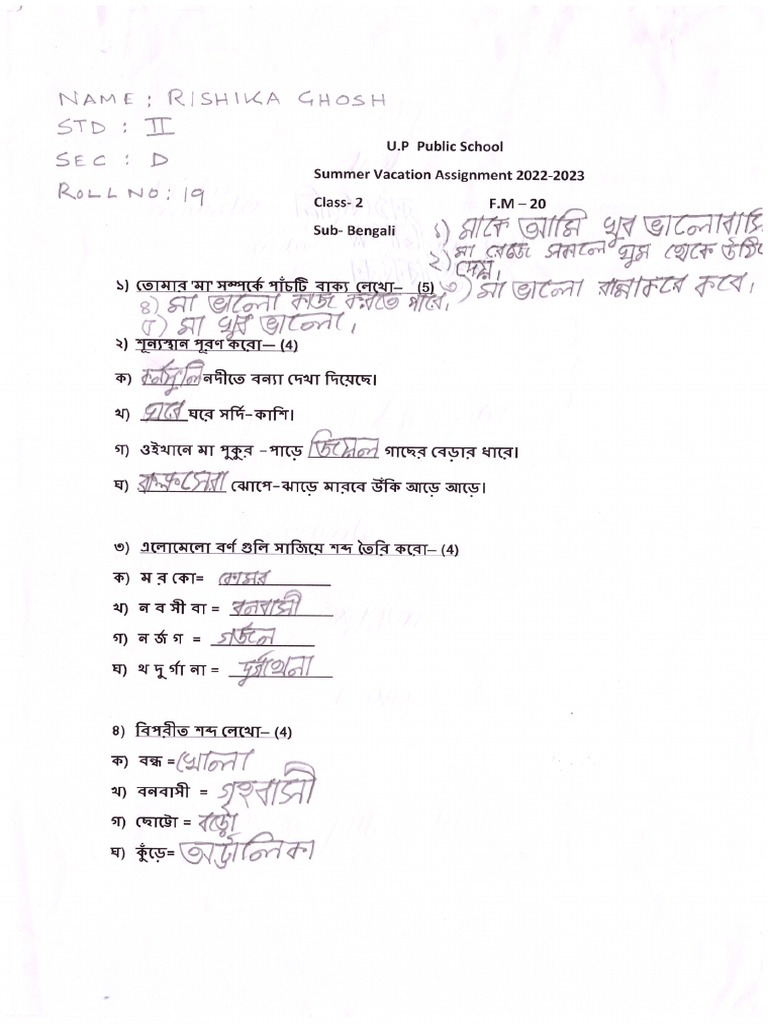 NAME : RISHIKA GHOSH
STD : II
SEC : D
ROLL NO : 19
U.P Public School
Summer Vacation Assignment 2022-2023
Class- 2 F.M – 20
Sub- Bengali
১) মাকে আমি খুব ভালোবাসি
২) মা রোজ সকালে ঘুম থেকে উঠি
দেয়।
১) তোমার 'মা' সম্পর্কে পাঁচটি বাক্য লেখো– (5)
৩) মা ভালো রান্না করে করে।
৪) মা ভালো কাজ করতে পারে।
৫) মা খুব ভালো।
২) শূন্যস্থান পূরণ করো— (4)
ক) নদীতে বন্যা দেখা দিয়েছে।
খ) ঘরে ঘরে সর্দি-কাশি।
গ) ওইখানে মা পুকুর -পাড়ে জিয়েল গাছের বেড়ার ধারে।
ঘ) ঝোপে-ঝাড়ে মারবে উঁকি আড়ে আড়ে।
৩) এলোমেলো বর্ণ গুলি সাজিয়ে শব্দ তৈরি করো– (4)
ক) ম র কো= কোমর
খ) ন ব সী বা = বনবাসী
গ) ন র্জ গ = গর্জন
ঘ) থ দু র্গা না =
৪) বিপরীত শব্দ লেখো– (4)
ক) বন্ধ = খোলা
খ) বনবাসী = গৃহবাসী
গ) ছোট্টো = বড়ো
ঘ) কুঁড়ে= অট্টালিকা